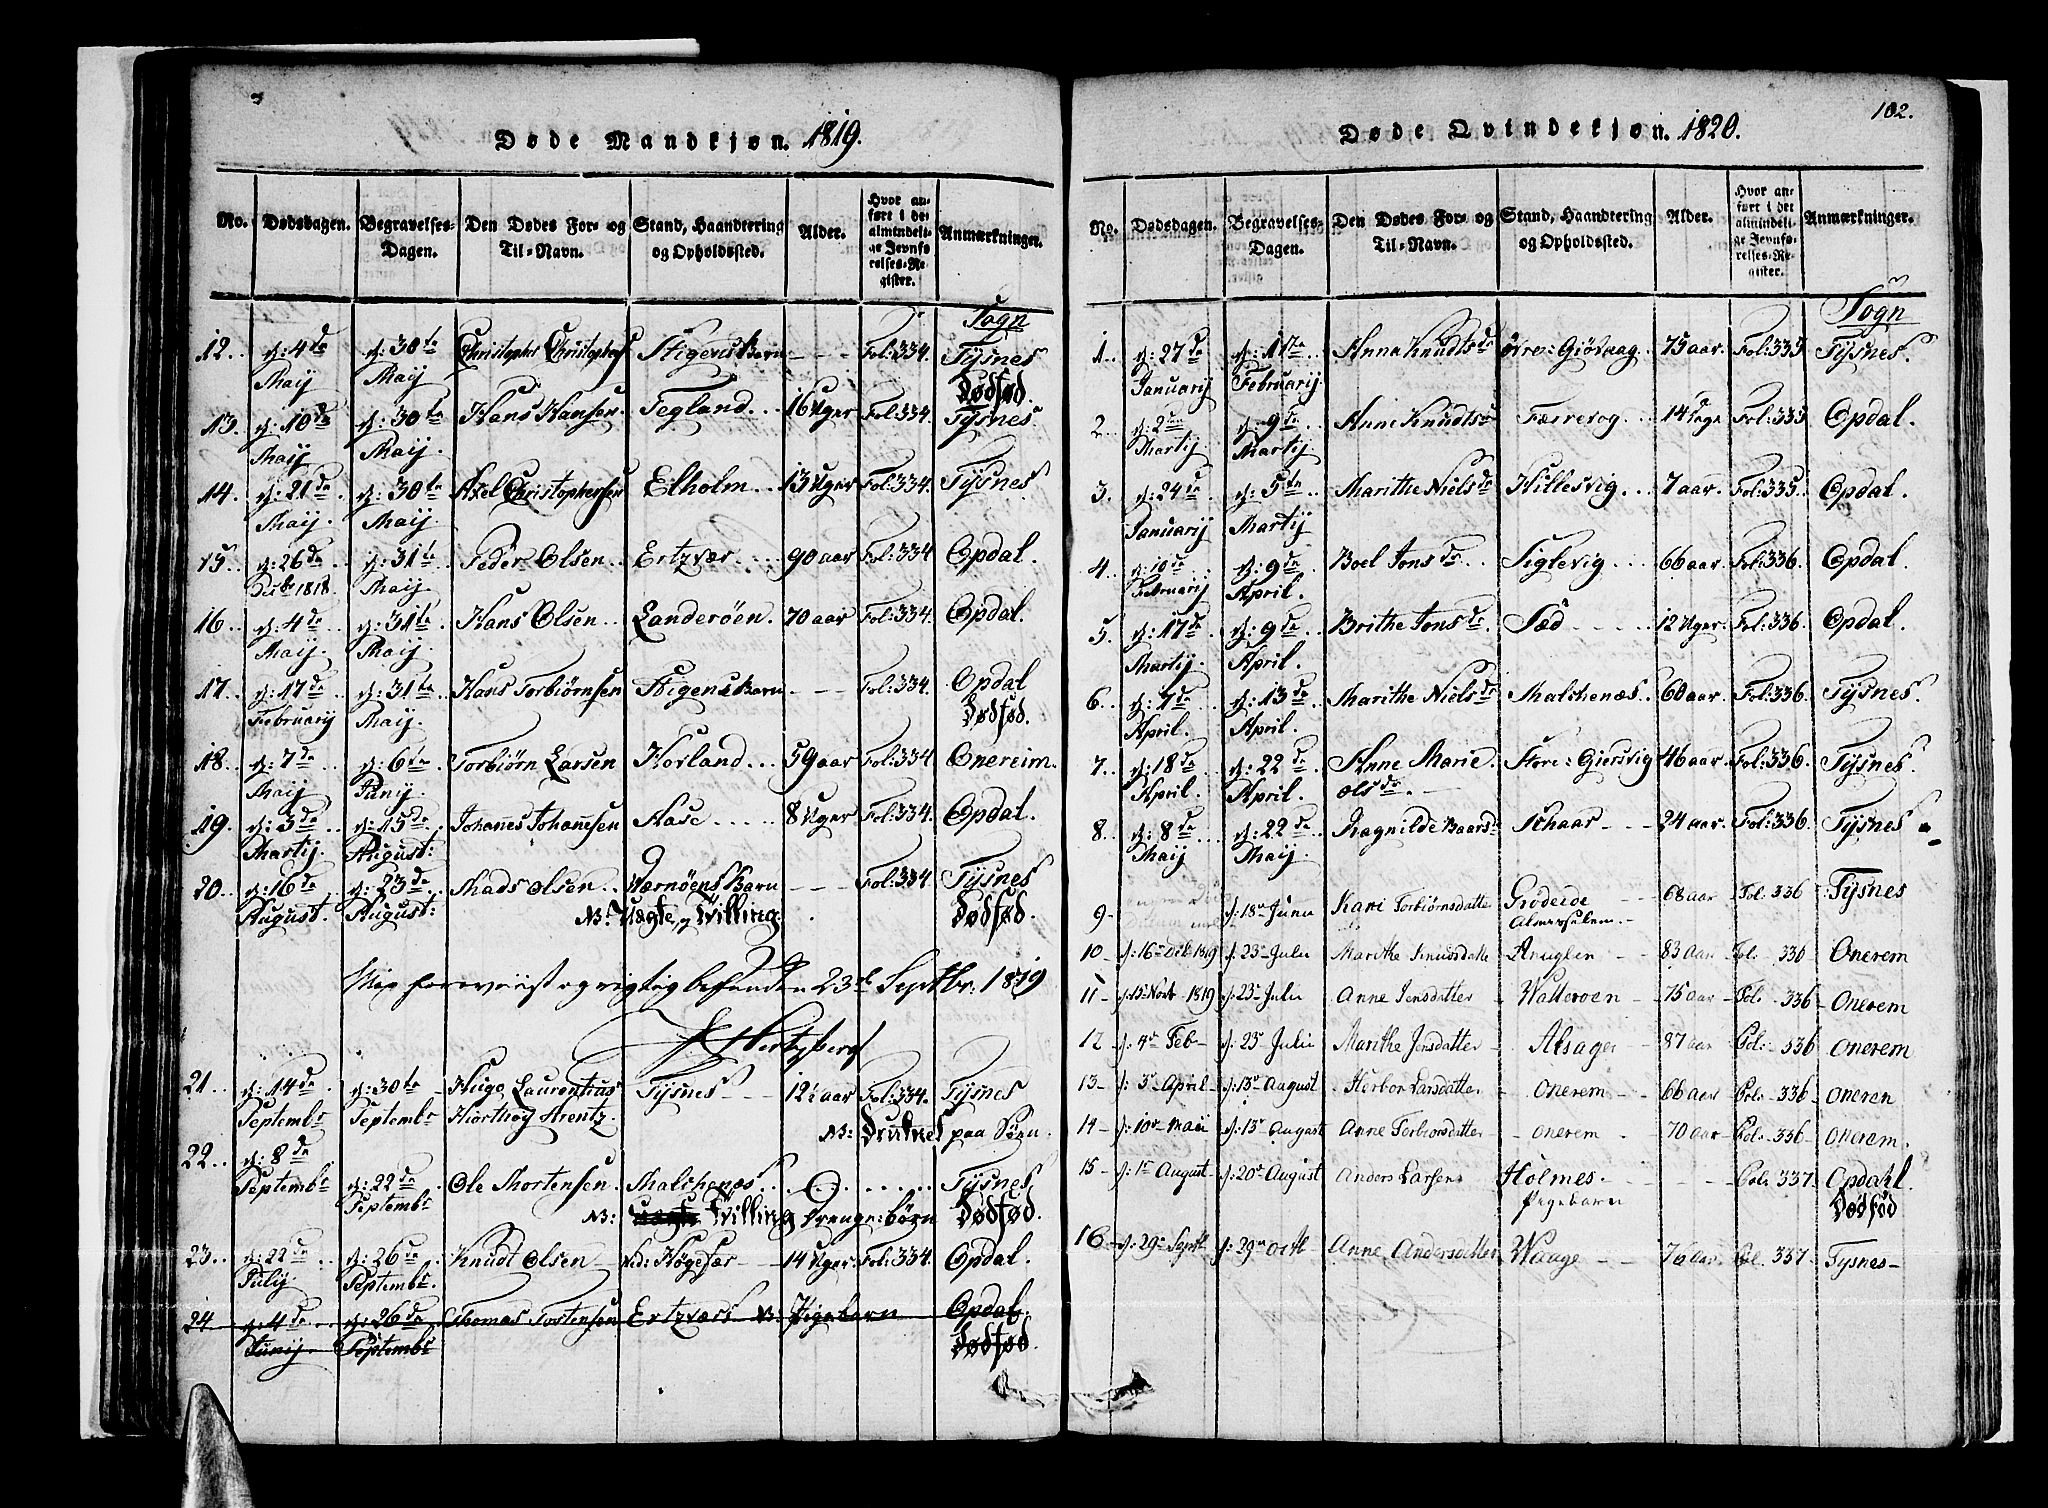 Døde Mandkjøn. 1819.
No. Dødsdagen. Begravelses-Dagen. Den Dødes For- og Til-Navn. Stand, Haandtering og Opholdssted. Alder. Hvor anført i det almindelige Jevnførelses-Register. Anmærkninger.
Sogn
12. d: 4de Maij d: 30te Maij Christopher Christophers Barn - - - Fol: 334. Tysnes Dødfød.
13. d: 10de Maij d: 30te Maij. Hans Hansen. Tegland. 16 Uger Fol: 334. Tysnes.
14. d: 21de Maij. d: 30te Maij. Axel Christophersen Elholm 13 Uger Fol: 334. Tysnes
15. d: 26de Decbr 1818. d: 31te Maij. Peder Olsen Ertzvær 90 aar Fol: 334. Opdal.
16. d: 4de Maij. d: 31te Maij. Hans Olsen Landerøen. 70 aar Fol: 334. Opdal.
17. d: 17de February d: 31te Maij. Hans Torbiørnsen Barn - - - Fol: 334. Opdal Dødfød.
18. d: 7de Maij d: 6te Junij. Torbiørn Larsen Horland 59 aar Fol: 334 Onereim.
19. d: 3de Martij. d: 15de August: Johannes Johannesen Aase 8 Uger Fol: 334. Opdal.
20. d: 16de August. d: 23de August: Mads Olsen Værnøens Barn - - - Fol: 334 Tysnes
NB: Ægte, Tvilling Dødfød.
og rigtig befunden 23de Septbr: 1819
Hertzberg
21. d: 14de Septembr d: 30te Septembr Hugo Laurentius Hiorthøy Arentz. Tysnes 12½ aar Fol: 334. Tysnes
NB: Drucknet paa Søen.
22. d: 8de Septembr d: 22de Septembr Ole Mortensen Malchenæs Tysnes
NB: Tvilling Drenge: børn Dødfød.
23. d: 22de Julij d: 26de Septembr Knudt Olsen Ned: Høgefær 14 Uger. Fol: 334. Opdal.
24 d: 4de Junij d: 26de Septembr Thomas Torstensen Ertzvær NB: Pigebarn Opdal. Dødfød.
Døde Qvindekjøn. 1820.
102.
No. Dødsdagen. Begravelses-Dagen. Den Dødes For- og Til-Navn. Stand, Haandtering og Opholdssted. Alder. Hvor anført i det almindelige Jevnførelses-Register. Anmærkninger.
Sogn
1. d: 27de Januarij d: 11te Februarij. Anna Knudtsdr øvre: Giøvaag 75 aar. Fol: 335 Tysnes.
2. d: 2den Martij d: 9de Martij Anne Knudtsdr Færrevog 14 Dage Fol: 335 Opdal.
3. d: 24de Januarij d: 5te Martij Marithe Nielsdr Hillesvig 7 aar. Fol: 335. Opdal.
4. d: 10de Februarij d: 9de April. Boel Jonsdr Tiglevig 66 aar. Fol: 336. Opdal
5. d: 17de Martij. d: 9de April. Brithe Jonsdr Sæd 12 Uger. Fol: 336. Opdal
6. d: 7de April. d: 13de April. Marithe Nielsdr Malchenæs 60 aar. Fol: 336. Tysnes
7. d: 18de April. d: 22de April. Anne Marie Olsdr Store: Giersvig 46 aar. Fol: 336. Tysnes.
8. d: 8de Maij d: 22de Maij. Ragnilde Baarsdr Schaar 24 aar. Fol: 336. Tysnes
9 d: 18de Junii Kari Torbiørnsdatter Grødeide 68 aar Fol. 336 Tysnes
10 d: 16de Decb 1819 d: 23de Julii Marithe Knudsdatter Anuglen 83 aar Fol. 336 Onerem
11 d: 15de Novb 1819 d: 23de Julii Anne Jensdatter Watteroen 75 aar Fol. 336 Onerem
12 d: 4de Feb d: 23de Julii Marithe Jensdatter Alsager 87 aar Fol. 336 Onerem
13 d: 3de April d: 13de August Herbor Larsdatter Onerem 66 aar Fol. 336 Oneren
14 d: 10de Maii d: 13de August Anne Torbiørsdatter Onerem 70 aar Fol. 336 Onerem.
15 d: 1te August d: 20de August Anders Larsens Holmes Pigebarn - - Fol. 337. Opdahl. Dødfød
16 d: 29de Septb d: 29de Octb Anne Andersdatter Waage 76 aar. Fol. 337. Tysnes